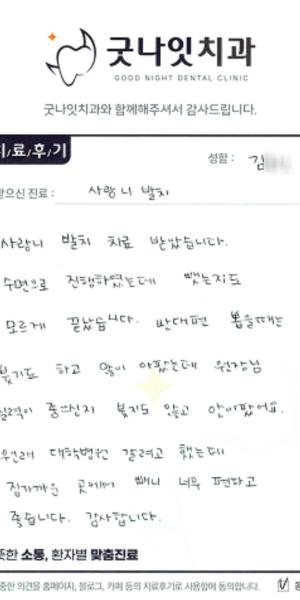 굿나잇치과
GOOD NIGHT DENTAL CLINIC
굿나잇치과와 함께해주셔서 감사드립니다.
치/료/후/기
성함 : 김
받으신 진료 : 사랑니 발치
사랑니 발치 치료 받았습니다.
수면으로 진행하였는데 뺐는지도
모르게 끝났습니다. 반대편 뽑을때는
붓기도 하고 많이 아팠는데 원장님
실력이 좋으신지 붓지도 않고 안아팠어요.
원래 대학병원 갈려고 했는데
집가까운 곳에서 빼니 너무 편하고
좋습니다. 감사합니다.
뜻한 소통, 환자별 맞춤진료
중한 의견을 홈페이지, 블로그, 카페 등의 치료후기로 사용함에 동의합니다.